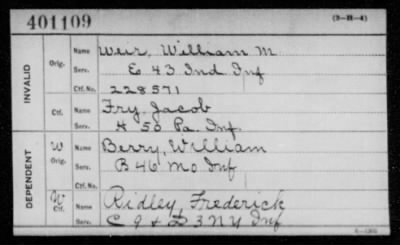 401109 (3-H-4)
INVALID
Orig. Name Weir, William M
Serv. E 43 Ind Inf
Ctf. No. 228571
Ctf. Name Fry, Jacob
Serv. H 50 Pa Inf
DEPENDENT
W Orig. Name Berry, William
Serv. B 46 Mo Inf
Ctf. No.
W Ctf. Name Ridley, Frederick
Serv. C 9 & D 3 NY Inf